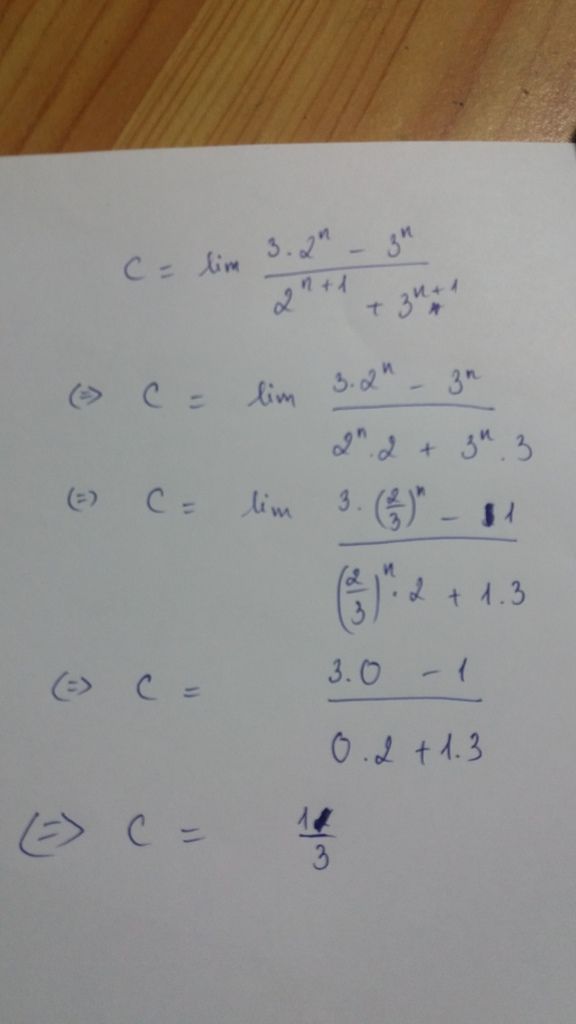 C = lim (3.2^n - 3^n)/(2^{n+1} + 3^{n+1})
(=> C = lim (3.2^n - 3^n)/(2^n.2 + 3^n.3)
(=) C = lim (3.(2/3)^n - 1)/((2/3)^n.2 + 1.3)
(=> C = (3.0 - 1)/(0.2 + 1.3)
(=> C = 1/3